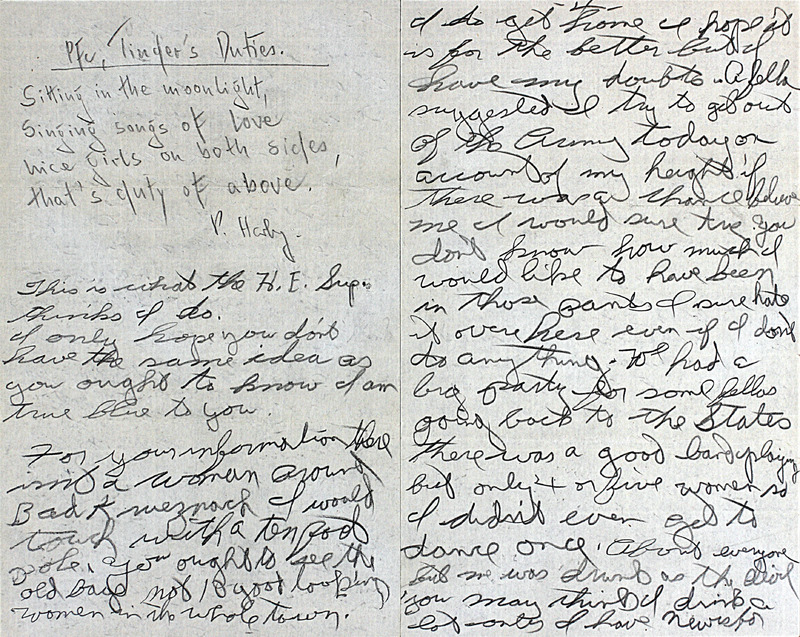 Pfc, Tinder's Duties.
Sitting in the moonlight,
Singing songs of love
nice girls on both sides,
that's duty of above.
P. Harby.
This is what the H. E. Sup.
thinks I do.
I only hope you don't
have the same idea as
you ought to know I am
true blue to you.
For your information there
isn't a woman around
Bad Kreuznach I would
touch with a ten foot
pole. You ought to see the
old bags not 10 good looking
women in the whole town.
I do get home I hope it
is for the better but I
have my doubts. A fella
suggested I try to get out
of the Army today on
account of my height if
there was a chance believe
me I would sure try you
don't know how much I
would like to have been
in those pants I sure hate
it over here even if I don't
do anything. We had a
big party for some fellas
going back to the States
there was a good band playing
but only 4 or five women so
I didn't even get to
dance once. About everyone
but me was drunk as the devil
you may think I drink a
lot onts I have